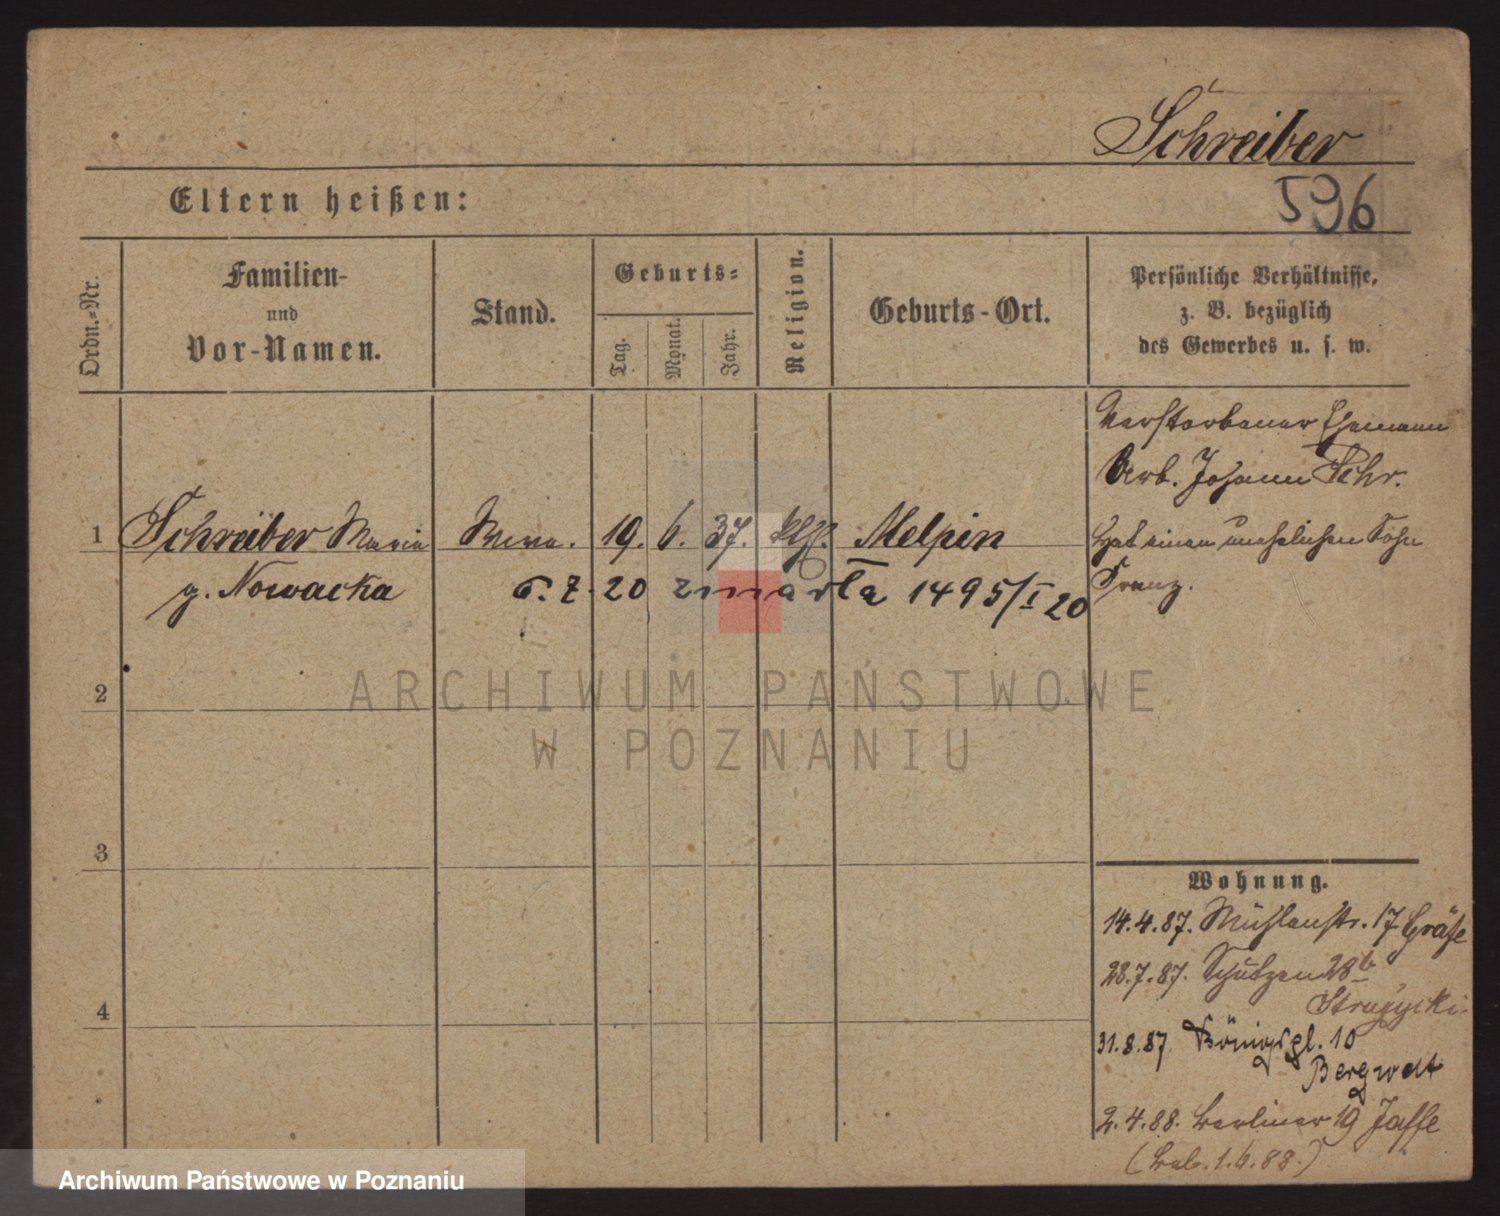 Schreiber
596
Eltern heißen:
Ordn.-Nr.
Familien-
und
Vor-Namen.
Stand.
Geburts-
Tag.
Monat.
Jahr.
Religion.
Geburts-Ort.
Persönliche Verhältnisse,
z. B. bezüglich
des Gewerbes u. s. w.
Verstorbener Ehemann
Arb. Johann Schr.
1 Schreiber Maria Wwe. 19. 6. 37. kth. Melpin
g. Nowacka
6.2.20 zmarła 1495/I 20
Hat einen unehelichen Sohn
Franz.
2
3
4
ARCHIWUM PAŃSTWOWE
W POZNANIU
Wohnung.
14.4.87. Mühlenstr. 17 Gräfe
28.7.87. Schützen 28b
Struzycki
31.8.87. Königspl. 10
Bergwelt
2.4.88. Berliner 19 Jaffe
1.6.88.)
Archiwum Państwowe w Poznaniu